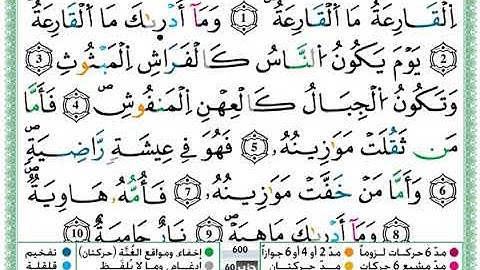 اِ۬لْقَارِعَةُ مَا اَ۬لْقَارِعَةُۖ 1 وَمَآ أَدْر۪يٰكَ مَا اَ۬لْقَارِعَةُۖ
2 يَوْمَ يَكُونُ اُ۬لنَّاسُ كَالْفَرَاشِ اِ۬لْمَبْثُوثِ 3
وَتَكُونُ اُ۬لْجِبَالُ كَالْعِهْنِ اِ۬لْمَنفُوشِۖ 4 فَأَمَّا
مَن ثَقُلَتْ مَوَٰزِينُهُۥ 5 فَهُوَ فِے عِيشَةٖ رَّاضِيَةٖۖ
6 وَأَمَّا مَنْ خَفَّتْ مَوَٰزِينُهُۥ 7 فَأُمُّهُۥ هَاوِيَةٞۖ
8 وَمَآ أَدْر۪يٰكَ مَا هِيَهْۖ 9 نَارٌ حَامِيَةُۢۖ 10
مدّ 6 حركات لزوماً مدّ 2 أو 4 أو 6 جوازاً 600 إخفاء، ومواقع الغُنَّة (حركتان) تفخيم
مدّ مشبع 6 حركات مدّ حركتان إدغام، وما لا يُلفَظ قلقلة